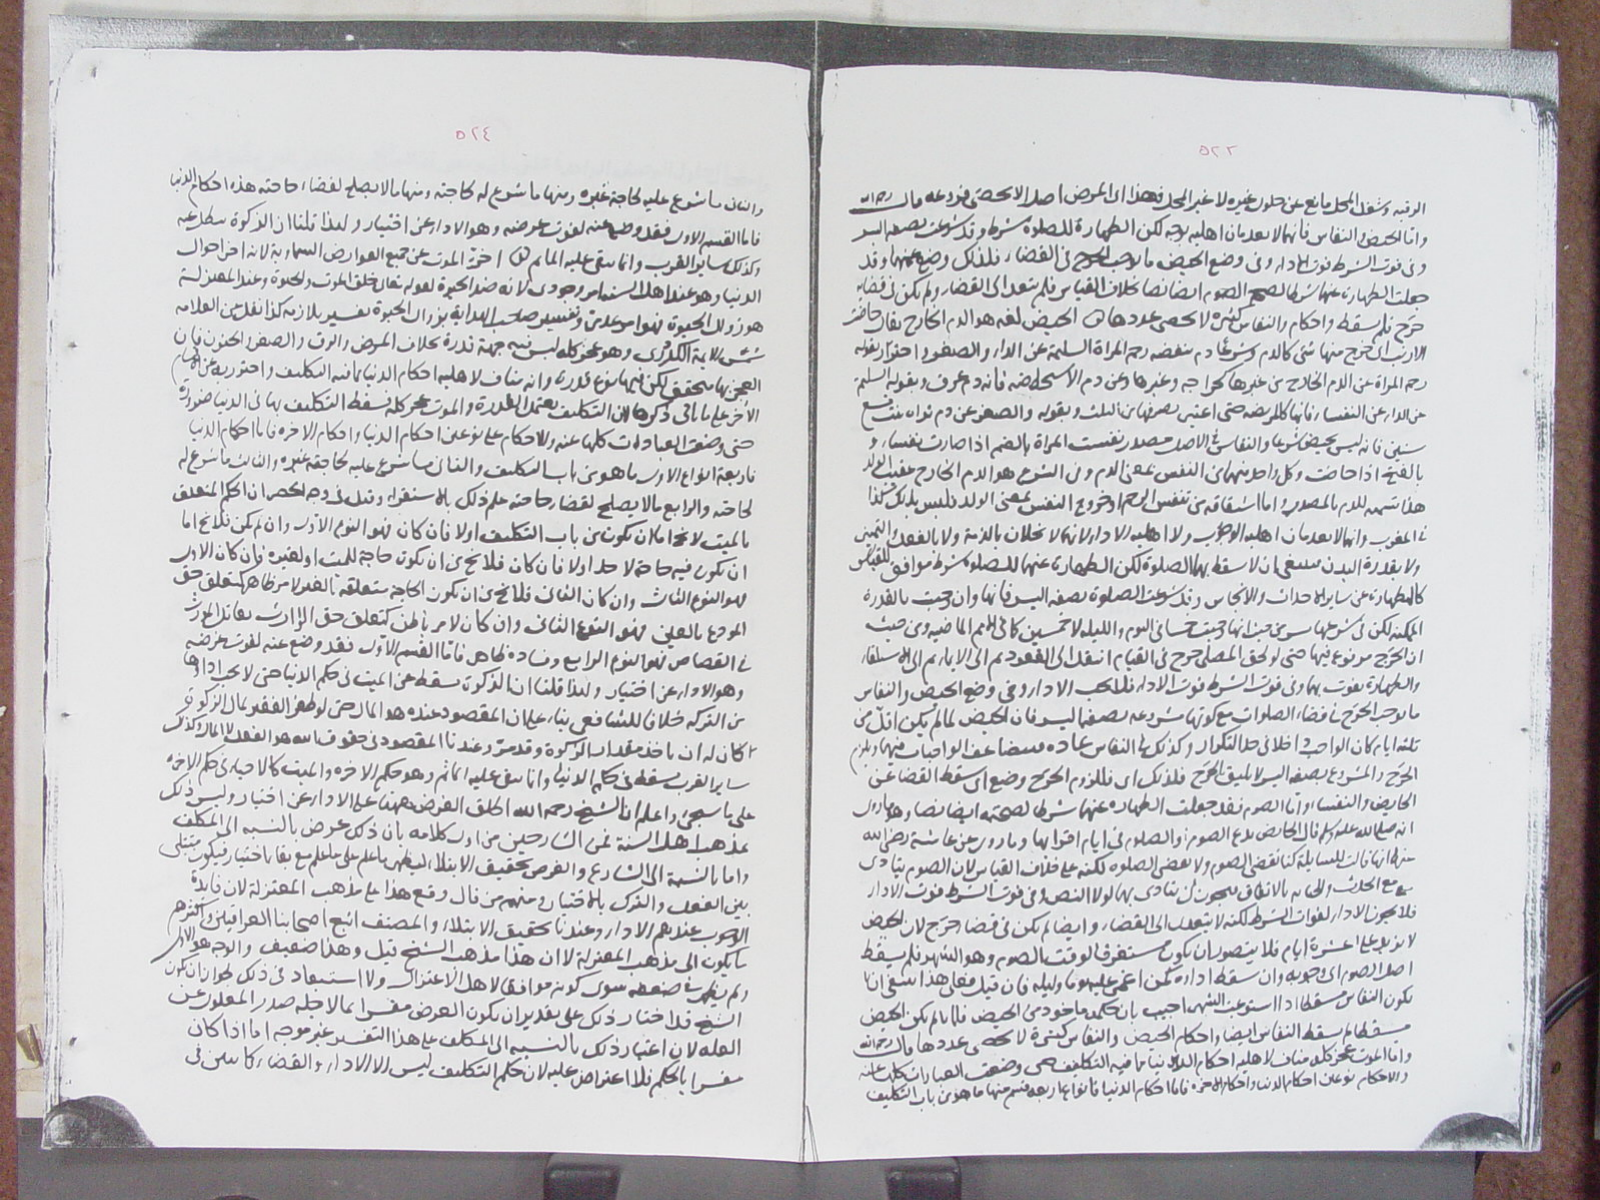 ٥٢٣
الرقبه وشغل المحل مانع عن حلول غيره لا غير المحل فهذا اى المرض اصل لا يحصى فروعه قال رحمه الله
واما الحيض والنفاس فانهما لا يعدمان اهليه بوجه لكن الطهارة للصلوة شرط وقد شرعت بصفه اليسر
وفى فوت الشرط فوت الاداء وفى وضع الحيض ما يوجب الحرج فى القضاء فلذلك وضع عنهما وقد
جعلت الطهارة عنهما شرطا لصحة الصوم ايضا نصا بخلاف القياس فلم يتعد الى القضاء ولم يكن فى قضائه
حرج فلم يسقط واحكام الحيض والنفاس كثيرة لا يحصى عددها الحيض لغه هو الدم الخارج يقال حاضت
الارنب اى خرج منها شئ كالدم وشرعا دم ينفضه رحم المراة السليمة عن الداء والصغر واحترز بقوله
رحم المراة عن الدم الخارج من غيرها كجراحة وغيرها وعن دم الاستحاضه فانه دم عرق وبقوله السليمة
عن الداء عن النفساء فانها كالمريضه حتى اعتبر تصرفها من الثلث وبقوله والصغر عن دم تراه بنت تسع
سنين فانه ليس بحيض شرعا والنفاس فى الاصل مصدر نفست المراة بالضم اذا صارت نفساء و
بالفتح اذا حاضت وكل واحد منهما من النفس بمعنى الدم وفى الشرع هو الدم الخارج عقيب الولد
هذا تسميه للدم بالمصدر واما اشتقاقه من تنفس الرحم او خروج النفس بمعنى الولد فليس بذلك كذا
فى المغرب وانهما لا يعدمان اهليه الوجوب ولا اهليه الاداء لانهما لا يخلان بالذمة ولا بالعقل والتمييز
ولا بقدرة البدن فينبغى ان لا يسقط بهما الصلوة لكن الطهارة عنهما للصلوة شرط موافق للقياس
كالطهارة عن سائر الاحداث والانجاس وقد شرعت الصلوة بصفه اليسر فانها وان وجبت بالقدرة
الممكنة لكن فى شرعها يسر من حيث انها وجبت خمسا فى اليوم والليله لا خمسين كما فى الامم الماضيه ومن حيث
ان الحرج مرفوع فيها حتى لو لحق المصلى حرج فى القيام انتقل الى القعود ثم الى الايماء ثم الى الاستلقاء
والطهارة يفوت بهما وفى فوت الشرط فوت الاداء فلا يجب الاداء وفى وضع الحيض والنفاس
ما يوجب الحرج فى قضاء الصلوات مع كونها مشروعه بصفه اليسر فان الحيض لما لم يكن اقل من
ثلثة ايام كان الواجب داخلا فى حد التكرار وكذلك فى النفاس عادة فيتضاعف الواجبات فيهما ويلزم
الحرج والمشروع بصفه اليسر لا يليق الحرج فلذلك اى فللزوم الحرج وضع اى سقط القضاء عن
الحائض والنفساء واما الصوم فقد جعلت الطهارة عنهما شرطا لصحته ايضا نصا وهو ما روى
انه صلى الله عليه وسلم قال الحائض تدع الصوم والصلوة فى ايام اقرائها وما روى عن عائشة رضى الله
عنها انها قالت للسايلة كنا نقضى الصوم ولا نقضى الصلوه لكنه على خلاف القياس لان الصوم يتادى
مع الحدث والجنابه بالاتفاق فيجوز ان يتادى بهما لولا النص وفى فوت الشرط فوت الاداء
فلا يجوز الاداء لفوات الشرط لكنه لا يتعدى الى القضاء وايضا لم يكن فى قضائه حرج لان الحيض
لا يزيد على عشرة ايام فلا يتصور ان يكون مستغرقا لوقت الصوم وهو الشهر فلم يسقط
اصل الصوم اى وجوبه وان سقط اداءه كمن اغمى عليه يوما وليله فان قيل فعلى هذا ينبغى ان
يكون النفاس مسقطا اذا استوعب الشهر اجيب بان حكمه ماخوذ من الحيض فلما لم يكن الحيض
مسقطا لم يسقط النفاس ايضا واحكام الحيض والنفاس كثيرة لا يحصى عددها قال رحمه الله
واما الموت عجز كله مناف لاهليه احكام الدنيا مما فيه التكليف حتى وضعت العبادات كلها عنه
والاحكام نوعان احكام الدنيا واحكام الاخرة فاما احكام الدنيا فانواعا اربعه قسم منها ما هو من باب التكليف
٥٢٤
والثانى ما شرع عليه لحاجة غيره ومنها ما شرع له لحاجته ومنها ما لا يصلح لقضاء حاجته هذه احكام الدنيا
فاما القسم الاول فقد وضع عنه لفوت غرضه وهو الاداء عن اختيار ولهذا قلنا ان الزكوة تبطل عنه
وكذلك سائر القرب وانما يبقى عليه الماثم اخر الموت عن جميع العوارض السماوية لانه اخر احوال
الدنيا وهو عند اهل السنة امر وجودى لانه ضد الحيوة لقوله تعالى خلق الموت والحيوة وعند المعتزلة
هو زوال الحيوة فهو امر عدمى وتفسير صاحب الهداية بزوال الحيوة تفسير بلازمه كذا نقل عن العلامه
شمس الائمة الكردرى وهو عجز كله ليس فيه جهة قدرة بخلاف المرض والرق والصغر والجنون فان
العجز بها متحقق لكن فيها نوع قدرة وانه مناف لاهليه احكام الدنيا مما فيه التكليف واحترز به عن احكام
الاخر على ما ياتى ذكرها لان التكليف يعتمد القدرة والموت عجز كله فسقط التكليف بها فى الدنيا ضرورة
حتى وضعت العبادات كلها عنه والاحكام على نوعين احكام الدنيا واحكام الاخره فاما احكام الدنيا
فاربعة انواع الاول ما هو من باب التكليف والثانى ما شرع عليه لحاجة غيره والثالث ما شرع له
لحاجته والرابع ما لا يصلح لقضاء حاجته علم ذلك بالاستقراء وقيل فى وجه الحصر ان الحكم المتعلق
بالميت لا يخ اما ان يكون من باب التكليف اولا فان كان فهو النوع الاول وان لم يكن فلا يخ اما
ان يكون فيه حاجة لاحد اولا فان كان فلا يخ من ان يكون حاجة للميت او لغيره فان كان الاول
فهو النوع الثالث وان كان الثانى فلا يخ من ان يكون الحاجة متعلقه بالغير لامر ظاهر كتعلق حق
المودع بالعين فهو النوع الثانى وان كان لامر باطن كتعلق حق الوارث بقاتل المورث
فى القصاص فهو النوع الرابع وفساده ظاهر فاما القسم الاول فقد وضع عنه لفوت غرضه
وهو الاداء عن اختيار ولهذا قلنا ان الزكوة يسقط عن الميت فى حكم الدنيا حتى لا يجب اداؤها
من التركه خلافا للشافعى بناء على ان المقصود عنده هو المال حتى لو ظفر الفقير بمال الزكوة
كان له ان ياخذ مقدار الزكوة وقد مر وعندنا المقصود فى حقوق الله هو الفعل لا المال وكذلك
سائر القرب يسقط فى حكم الدنيا وانما يبقى عليه الماثم وهو حكم الاخره والميت كالاحياء فى حكم الاخره
على ما سيجئ واعلم ان الشيخ رحمه الله اطلق الغرض ههنا على الاداء عن اختيار وليس ذلك
مذهب اهل السنة فمن الشارحين من اول كلامه بان ذلك غرض بالنسبه الى المكلف
واما بالنسبة الى الشارع والغرض تحقيق الابتلاء ليظهر ما علم على ما علم مع بقاء اختيار فيكون مبتلى
بين الفعل والترك بالاختيار ومنهم من قال وقع هذا على مذهب المعتزلة لان فايدة
الوجوب عندهم الاداء وعندنا تحقيق الابتلاء والمصنف اتبع اصحابنا العراقيين واكثرهم
مايلون الى مذهب المعتزلة لا ان هذا مذهب الشيخ قيل وهذا ضعيف والوجه هو الاول
ولم يظهر فى ضعفه سوى كونه موافقا لاهل الاعتزال ولا استبعاد فى ذلك لجواز ان يكون
الشيخ قد اختار ذلك على تقدير ان يكون الغرض مفسرا بما لاجله صدر المعلول عن
العله لان اعتبار ذلك بالنسبه الى المكلف على هذا التفسير غير موجه اما اذا كان
مفسرا بالحكم فلا اعتراض عليه لان حكم التكليف ليس الا الاداء والقضاء كما بين فى